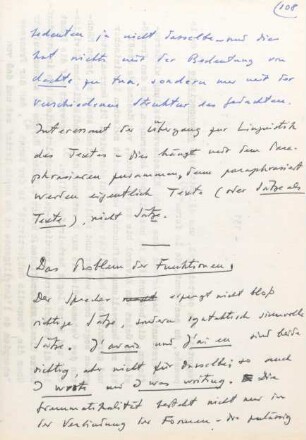 108
bedeuten ja nicht dasselbe – und dies
hat nichts mit der Bedeutung von
dachte zu tun, sondern nur mit der
verschiedenen Struktur des Gedachten.
Interessant der Übergang zur Linguistik
des Textes – dies hängt mit dem Para-
phrasieren zusammen, denn paraphrasiert
werden eigentlich Texte (oder Sätze als
Texte), nicht Sätze.
Das Problem der Funktionen
Der Sprecher erzeugt nicht bloß
richtige Sätze, sondern syntaktisch sinnvolle
Sätze. J'avais und J'ai eu sind beide
richtig, aber nicht für dasselbe; so auch
I wrote und I was writing. Die
Grammatikalität besteht nicht nur in
der Verbindung der Formen – die